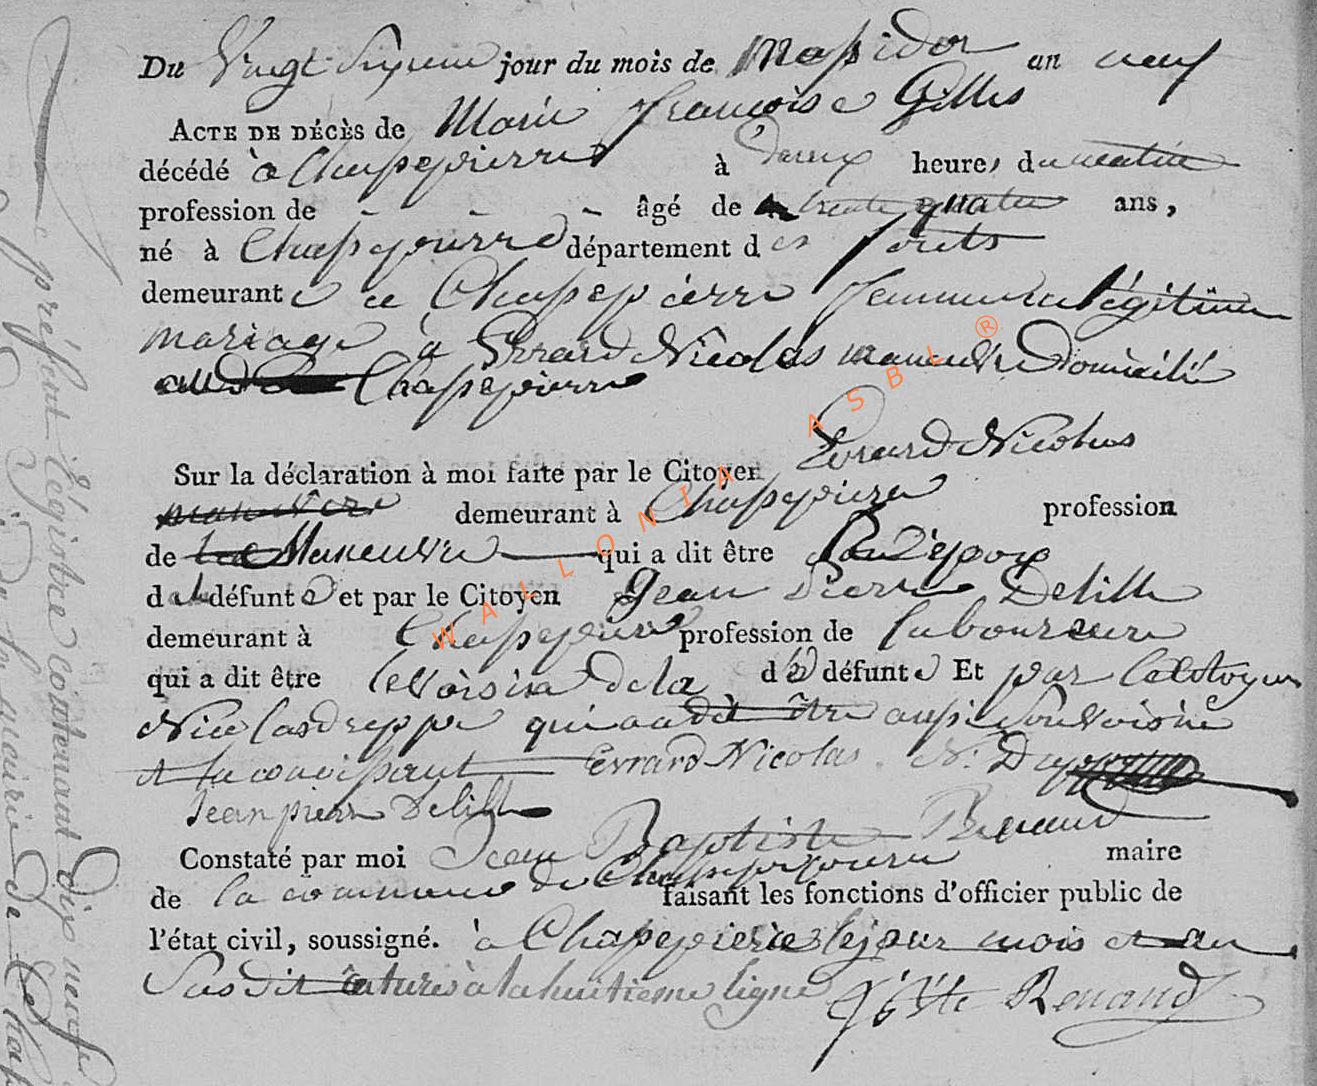 Du Vingt Sixieme jour du mois de Messidor an neuf
ACTE DE DÉCÈS de Marie françoise Gilles
décédé à Chassepierre à deux heures du matin
profession de - - - âgé de trente quatre ans,
né à Chassepierre département des forêts
demeurante a Chassepierre femme en légitime
mariage à Evrard Nicolas manœuvre Domicilié
Chassepierre
Sur la déclaration à moi faite par le Citoyen Evrard Nicolas
manœuvre demeurant à Chassepierre profession
de Manœuvre qui a dit être Son Epoux
d la défunte et par le Citoyen Jean Pierre Delille
demeurant à Chassepierre profession de laboureur
qui a dit être le Voisin de la d défunte Et par le Citoyen
Nicolas qui a dit être aussi Son Voisin
et la connoissant Evrard Nicolas. N.
Jean pierre Delille
Constaté par moi Jean Baptiste Renaud maire
de la commune de Chassepierre faisant les fonctions d'officier public de
l'état civil, soussigné. à Chassepierre le jour mois et an
Susdit ratures à la huitieme ligne
J Bte Renaud
le présent Régistre contenant dix neuf
de la mairie de Chas
WALLONIA ASBL ®